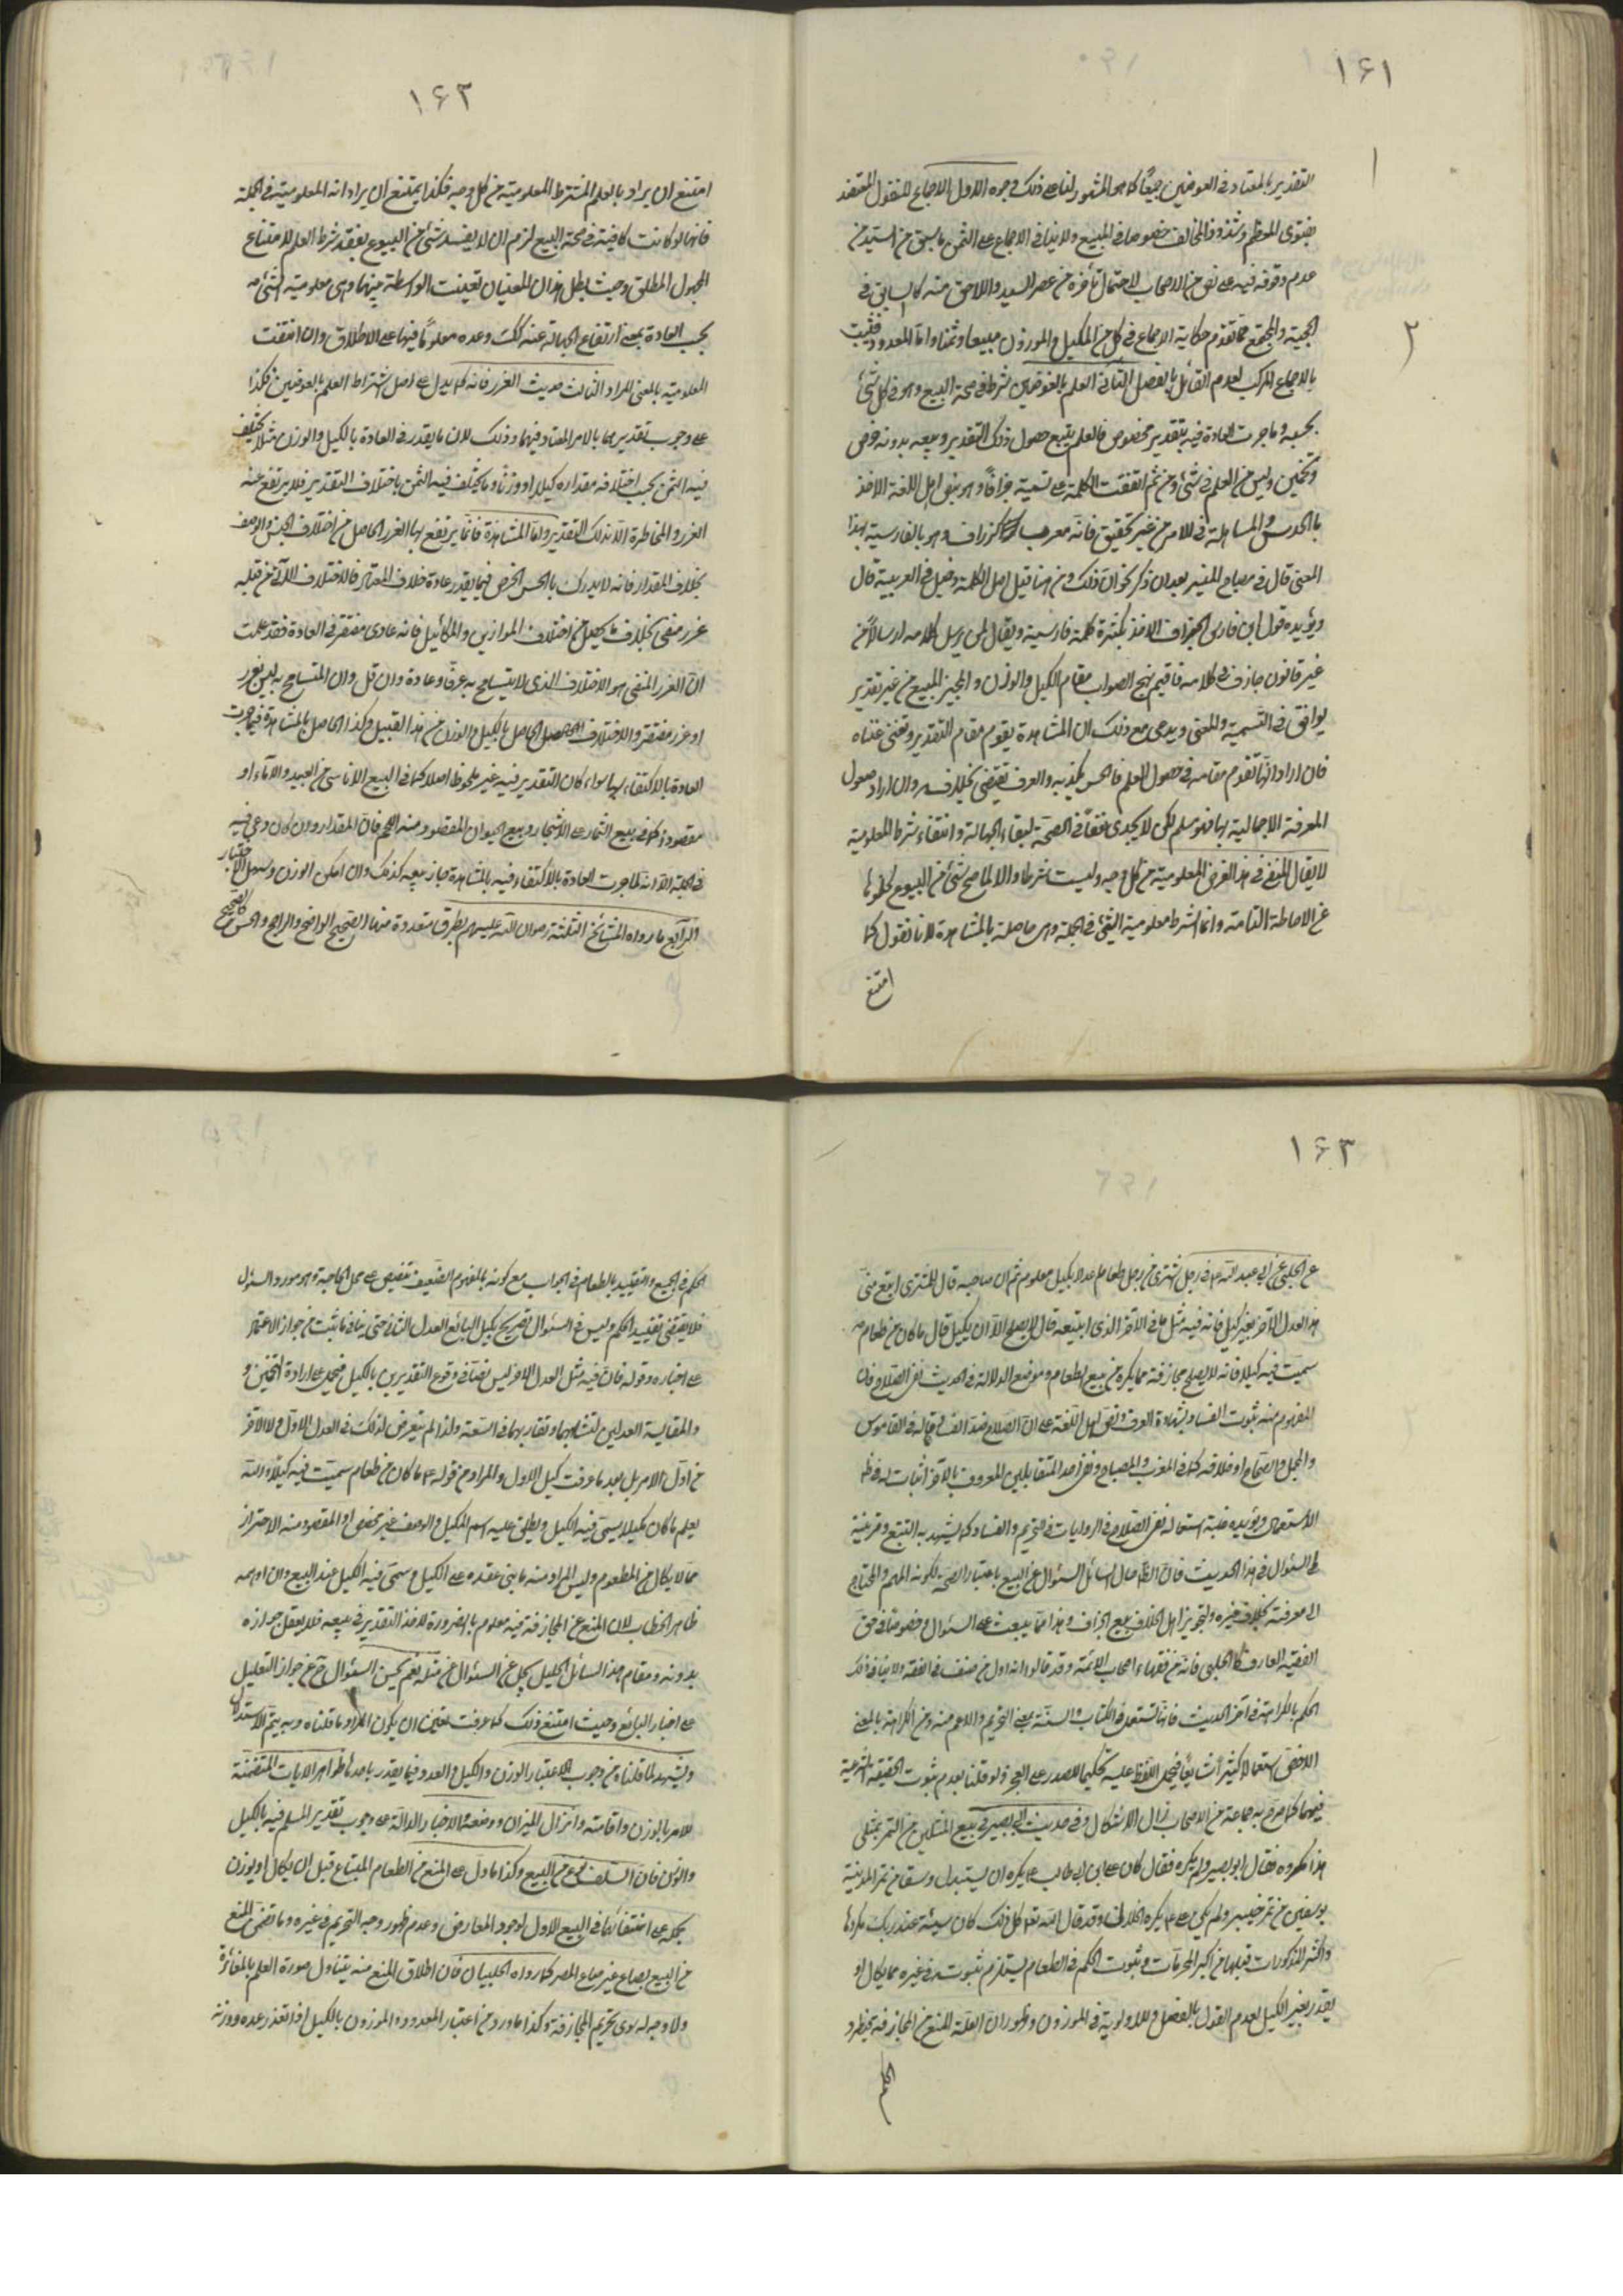 ١٦١
التقدير بالمعتاد في العوضين جميعًا كما هو المشهور لنا على ذلك وجوه الاول الاجماع المنقول المعتضد
بفتوى المعظم وشذوذ المخالف خصوصا في المبيع ولا ينافي الاجماع على الثمن ما سبق من السيد من
عدم وقوفه فيه على نص من الاصحاب لاحتمال تأخره عن عصر السيد واللاحق منه كالسابق في
الحجية والمجتمع مما تقدم حكاية الاجماع في كل من المكيل والموزون مبيعا وثمنا واما المعدود فيثبت
بالاجماع المركب لعدم القائل بالفصل الثاني العلم بالعوضين شرط في صحة البيع وهو في كل شئ
بحسبه وما جرت العادة فيه بتقدير مخصوص فالعلم يتبع حصول ذلك التقدير وبيعه بدونه خرص
وتخمين وليس من العلم في شئ ومن ثم اتفقت الكلمة على تسمية جزافًا وهو بنص اهل اللغة الاخذ
بالحدس والمساهلة في الامر من غير تحقيق فانه معرب كزاف وهو بالفارسية بهذا
المعنى قال في مصباح المنير بعد ان ذكر نحو ذلك ومن هنا قيل اصل الكلمة دخيل في العربية قال
ويؤيده قول ابن فارس الجزاف الاخذ بكثرة كلمة فارسية ويقال لمن يرسل كلامه ارسالًا من
غير قانون جازف في كلامه فاقيم نهج الصواب مقام الكيل والوزن والمجيز للمبيع من غير تقدير
يوافق في التسمية والمعنى ويدعى مع ذلك ان المشاهدة يقوم مقام التقدير وتغني غناه
فان اراد انها تقوم مقامه في حصول العلم فالحس يكذبه والعرف يقتضي بخلافه وان اراد حصول
المعرفة الاجمالية بها فهو مسلم لكن لا يجدي نفعًا في الصحة لبقاء الجهالة وانتفاء شرط المعلومية
لا يقال المنتفي في هذا الفرض المعلومية من كل وجه وليست شرطا والا لما صح شئ من البيوع لخلوها
عن الاحاطة التامة وانما الشرط معلومية الشئ في الجملة وهي حاصلة بالمشاهدة لانا نقول كما
امتنع
١٦٢
امتنع ان يراد بالعلم المشترط المعلومية من كل وجه فكذا يمتنع ان يراد انه المعلومية في الجملة
فانها لو كانت كافية في صحة البيع لزم ان لا يفسد شئ من البيوع بفقد شرط العلم لامتناع
المجهول المطلق وحيث بطل هذان المعنيان تعينت الواسطة بينهما وهي معلومية الشئ
بحسب العادة بمعنى ارتفاع الجهالة عنه وعده معلومًا فيها على الاطلاق وان انتفت
المعلومية بالمعنى المراد الثالث حديث الغرر فانه كما يدل على اصل اشتراط العلم بالعوضين فكذا
على وجوب تقديرهما بالامر المعتاد فيهما وذلك لان ما يقدر في العادة بالكيل والوزن مثلا يختلف
فيه الثمن بحسب اختلاف مقداره كيلا او وزنًا وما يختلف فيه الثمن باختلاف التقدير فلا يرتفع عنه
الغرر والمخاطرة الا بذلك التقدير واما المشاهدة فانما يرتفع بها الغرر الحاصل من اختلاف الجنس والوصف
بخلاف المقدار فانه لا يدرك بالحس الخرص فيما يقدر عادة خلاف المعتاد فالاختلاف الآتي من قبله
غرر منفي بخلاف ما يحصل من اختلاف الموازين والمكائيل فانه عادي مغتفر في العادة فقد علمت
ان الغرر المنفي هو الاختلاف الذي لا يتسامح به عرفًا وعادة وان قل وان المتسامح به ليس بغرر
او غرر مغتفر والاختلاف الحاصل بالكيل والوزن من هذا القبيل وكذا الحاصل بالمشاهدة فيما جرت
العادة بالاكتفاء بها سواء كان التقدير فيه غير ملحوظ اصلا كما في البيع الاناسي من العبيد والاماء او
مقصودًا كما في بيع الثمار على الاشجار وبيع الحيوان المقصود منه اللحم فان المقدار وان كان دعي فيه
في الجملة الا انه لما جرت العادة بالاكتفاء فيه بالمشاهدة جاز بيعه كذلك وان امكن الوزن وسهل الاختبار
الرابع ما رواه المشائخ الثلثة رضوان الله عليهم بطرق متعددة منها الصحيح الواضح والراجح والحسن كالصحيح
١٦٣
عن الحلبي عن ابي عبد الله ع في رجل يشترى من رجل طعاما عدلا بكيل معلوم ثم ان صاحبه قال للمشترى ابتع مني
هذا العدل الاخر بغير كيل فانه فيه مثل ما في الاخر الذي ابتعته قال لا يصلح الا ان يكيل قال ما كان من طعام
سميت فيه كيلا فانه لا يصلح مجازفة مما يكره من بيع الطعام وموضع الدلالة في الحديث نفي الصلاح فان
المفهوم منه ثبوت الفساد بشهادة العرف ونص اهل اللغة على ان الصلاح ضد الفساد قاله في القاموس
والمجمل والصحاح او خلافه كما في المغرب والمصباح ونفي احد المتقابلين المعروف بالاخر اثبات له في ظ
الاستعمال ويؤيده غلبة استعمال نفي الصلاح في الروايات في التحريم والفساد كما يشهد به التتبع وقرينة
السئوال في هذا الحديث فان الظ من حال السائل السئوال عن البيع باعتبار الصحة لكونه المهم والمحتاج
الى معرفته بخلاف غيره ولتجويز اهل الخلاف بيع الجزاف وهذا مما يبعث على السئوال وخصوصًا في حق
الفقيه العارف كالحلبي فانه من فقهاء اصحاب الائمة وقد قالوا انه اول من صنف في الفقه ولا ينافي ذلك
الحكم بالكراهة في اخر الحديث فانها تستعمل في الكتاب والسنة بمعنى التحريم والاعم منه ومن الكراهة بالمعنى
الاخص استعمالا كثيرًا شايعًا فيحمل اللفظ عليه تحكيما للصدر على العجز ولو قلنا بعدم ثبوت الحقيقة الشرعية
فيهما كما صرح به جماعة من الاصحاب زال الاشكال وفي حديث ابي بصير في بيع المثلين من التمر بمثلى
هذا مكروه فقال ابو بصير ولم يكره فقال كان علي بن ابي طالب ع يكره ان يستبدل وسقا من تمر المدينة
بوسقين من تمر خيبر ولم يكن علي ع يكره الحلال وقد قال الله تعالى كل ذلك كان سيئة عند ربك مكروها
واكثر المذكورات قبلها من اكبر المحرمات وثبوت الحكم في الطعام يستلزم ثبوته في غيره مما يكال او
يقدر بغير الكيل لعدم القول بالفصل وللاولوية في الموزون وظهور ان العلة للمنع من المجازفة فيطرد
الحكم
الحكم في الجميع والتقييد بالطعام في الجواب مع كونه بالمفهوم الضعيف تنصيص على محل الحاجة وهو مورد السئوال
فلا يقتضي تقييد الحكم وليس في السئوال تصريح بكيل البائع العدل الثاني حتى ينافي ما ثبت من جواز الاعتماد
على اخباره وقوله فان فيه مثل العدل الاخر ليس نصًا في وقوع التقديرين بالكيل فيحمل على ارادة التخمين و
والمقايسة العدلين لتشابههما وتقاربهما في السعة ولذا لم يتعرض لذلك في العدل الاول ولا الاخر
من اول الامر بل بعد ما عرفت كيل الاول والمراد من قوله ع ما كان من طعام سميت فيه كيلًا
يعلم ما كان مكيلا يسمى فيه الكيل ويطلق عليه اسم المكيل والوصف غير مخصص او المقصود منه الاحتراز
مما لا يكال من المطعوم وليس المراد منه ما بنى عقده على الكيل وسمى فيه الكيل عند البيع وان اوهمه
ظاهر الخطاب لان المنع عن المجازفة فيه معلوم بالضرورة لاخذ التقدير في بيعه فلا يعقل جوازه
بدونه ومقام هذا السائل الجليل يجل عن السئوال عن مثله نعم يحسن السئوال ح عن جواز التعليل
على اخبار البائع وحيث امتنع ذلك كما عرفت تعين ان يكون المراد ما قلناه وبه يتم الاستدلال
ويشهد لما قلناه من وجوب اعتبار الوزن والكيل والعدد فيما يقدر باحدها ظواهر الايات المتضمنة
للامر بالوزن واقامته وانزال الميزان ووضعه والاخبار الدالة على وجوب تقدير المسلم فيه بالكيل
والوزن فان السلف نوع من البيع وكذا ما دل على المنع من الطعام المبتاع قبل ان يكال او يوزن
بحمله على انتفائهما في البيع الاول لوجود المعارض وعدم ظهور وجه التحريم في غيره وما تضمن المنع
من البيع بصاع غير صاع المصر كما رواه الحلبيان فان اطلاق المنع منه يتناول صورة العلم بالمغائرة
ولا وجه له سوى تحريم المجازفة وكذا ما ورد من اعتبار المعدود والموزون بالكيل اذا تعذر عده ووزنه